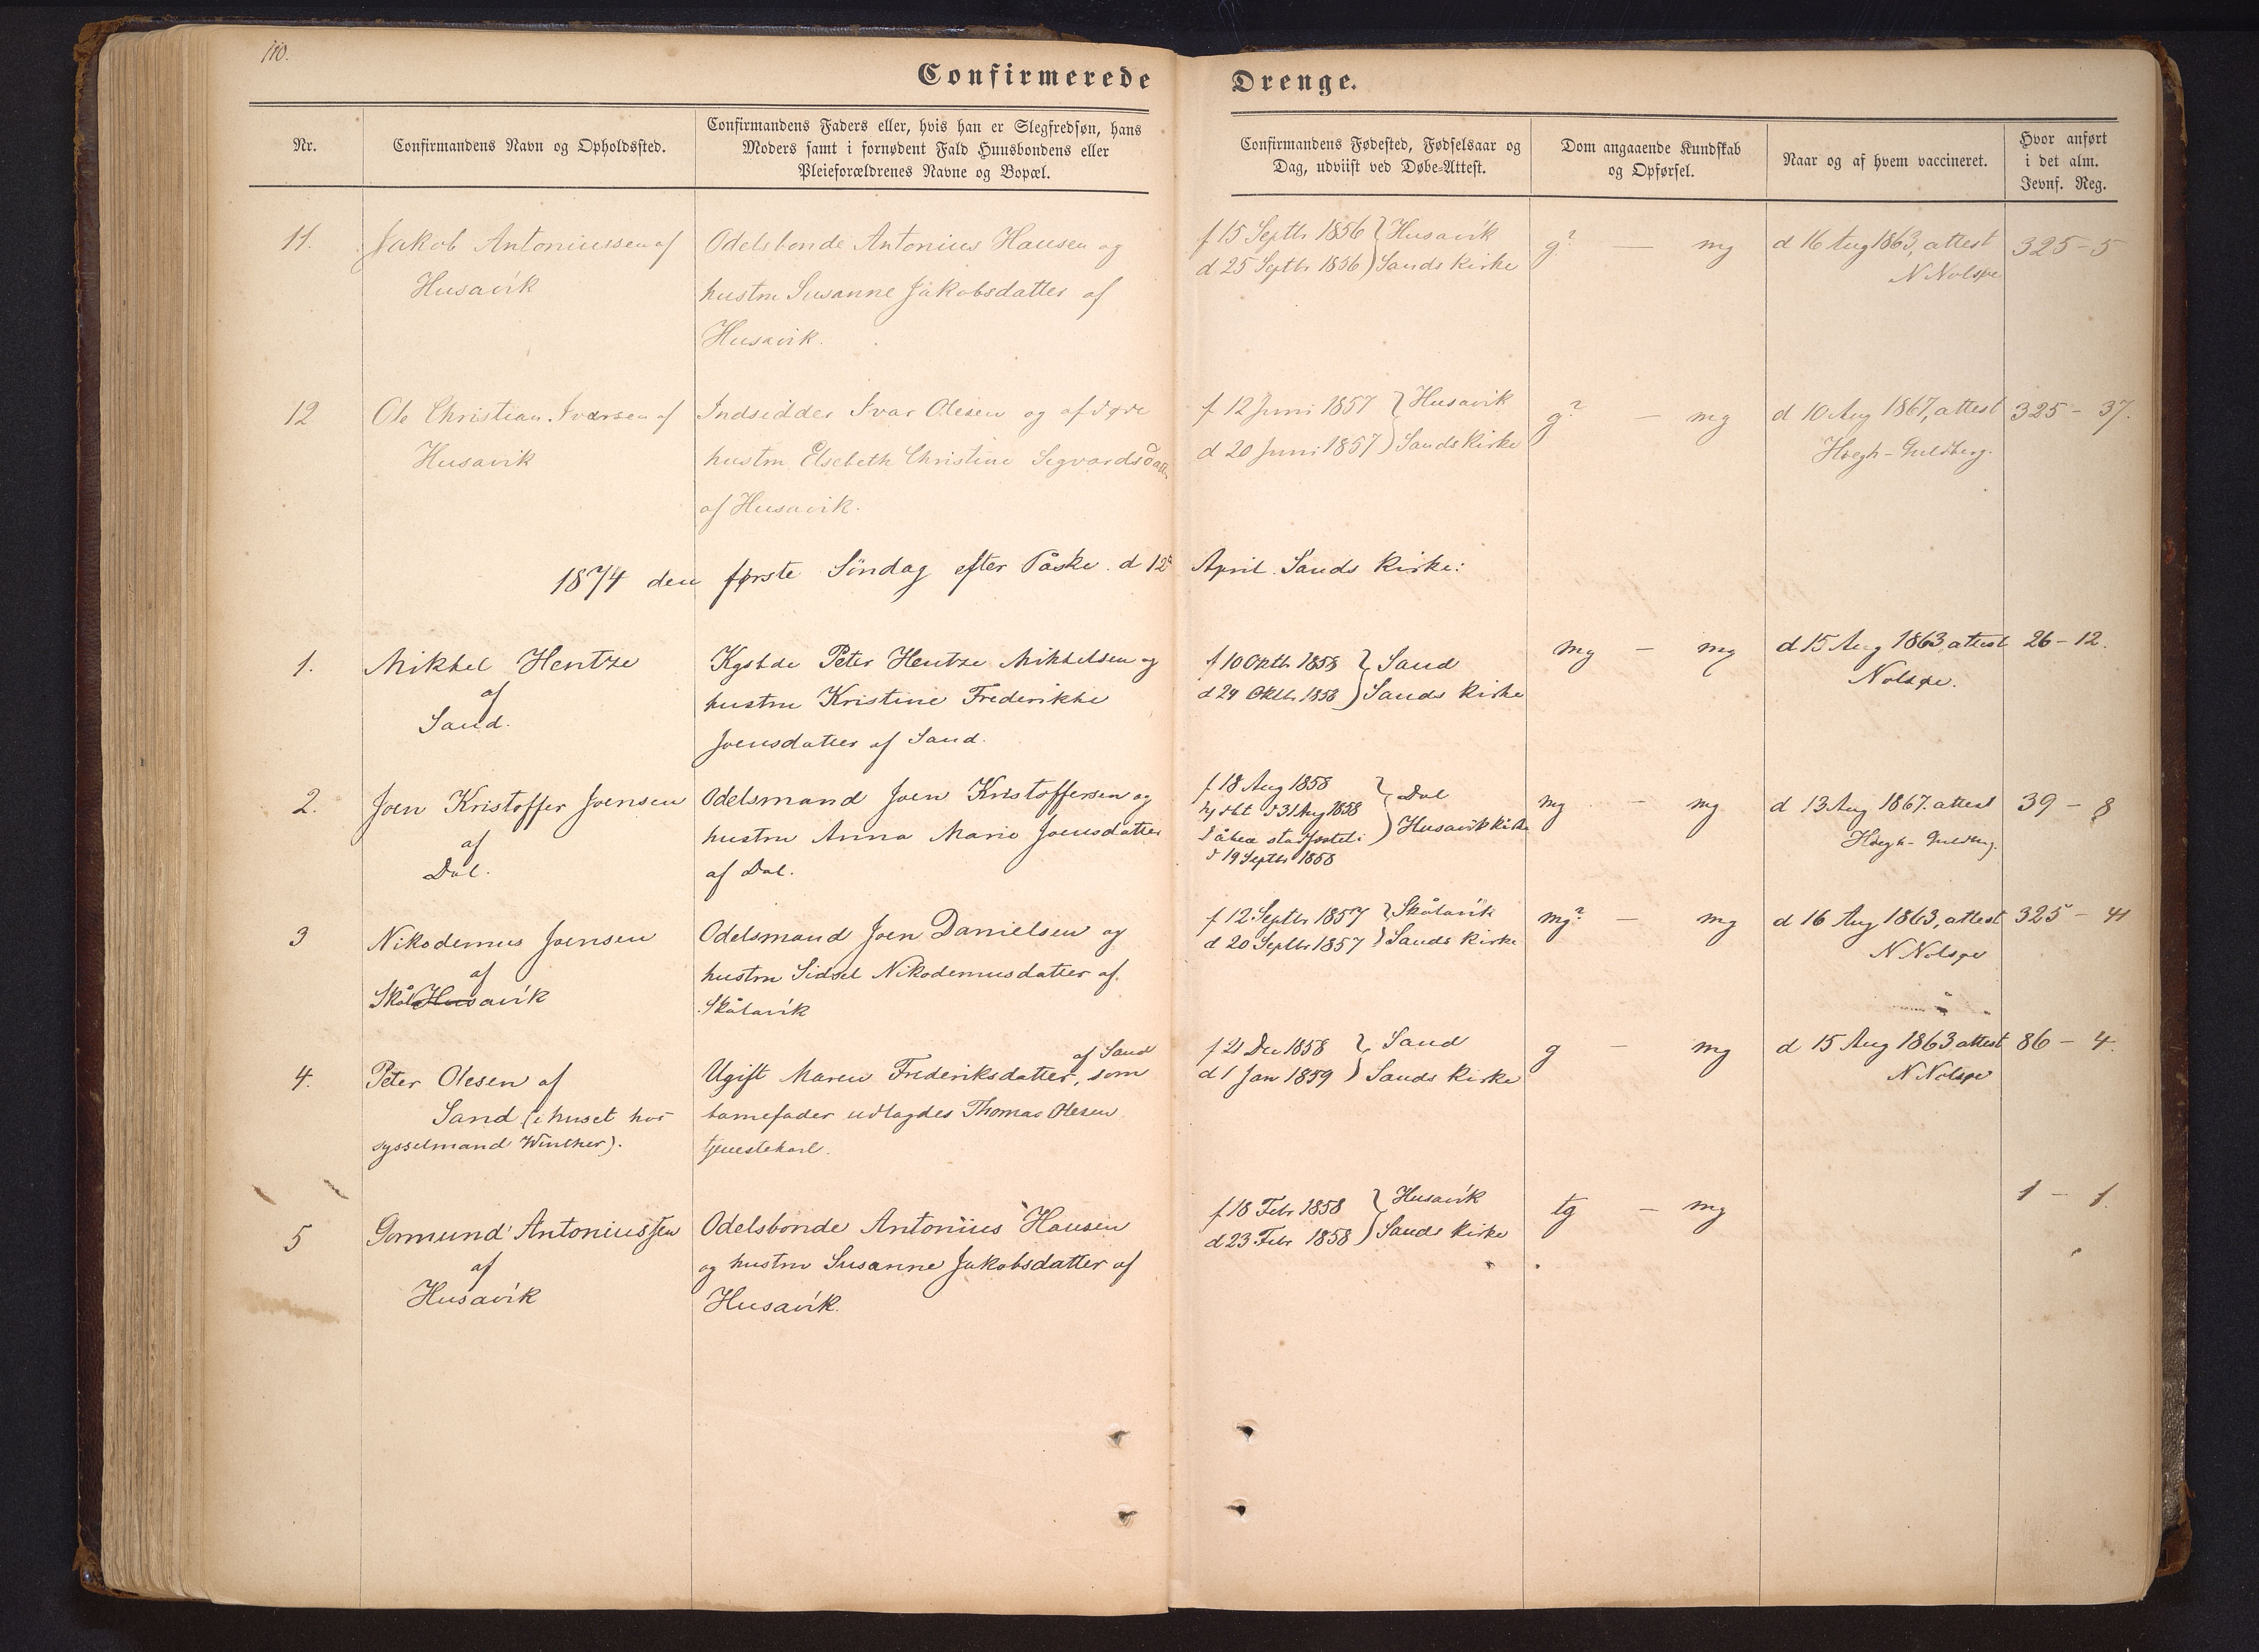 110.
Confirmerede Drenge.
Nr.
Confirmandens Navn og Opholdssted.
Confirmandens Faders eller, hvis han er Slegfredsøn, hans
Moders samt i fornødent Fald Huusbondens eller
Pleieforældrenes Navne og Bopæl.
Confirmandens Fødested, Fødselsaar og
Dag, udviist ved Døbe-Attest.
Dom angaaende Kundskab
og Opførsel.
Naar og af hvem vaccineret.
Hvor anført
i det alm.
Jevnf. Reg.
11.
Jakob Antoniussen af
Husavík
Odelsbonde Antonius Hansen og
hustru Susanne Jakobsdatter af
Husavik.
f 15 Septbr 1856 } Husavík
d 25 Septbr 1856 } Sands kirke
g? — mg
d 16 Aug 1863, attest
N Nolsøe
325 - 5
12
Ole Christian Ivarsen af
Husavik
Indsidder Ivar Olesen og afdøde
hustru Elsebeth Christine Segvardsdatter
af Husavik.
f 12 Juni 1857 } Husavik
d 20 Juni 1857 } Sands kirke
g? — mg
d 10 Aug 1867, attest
Høegh-Guldberg.
325 - 37.
1874 den første Söndag efter Påske. d 12 April. Sands kirke:
1.
Mikkel Hentze
af
Sand.
Kgsbde Peter Hentze Mikkelsen og
hustru Kristine Frederikke
Joensdatter af Sand.
f 10 Oktb 1858 } Sand
d 24 Oktbr. 1858 } Sands kirke
mg — mg
d 15 Aug 1863, attest
Nolsøe.
26 - 12.
2.
Joen Kristoffer Joensen
af
Dal.
Odelsmand Joen Kristoffersen og
hustru Anna Marie Joensdatter
af Dal.
f 18 Aug 1858
hjdbt d 31 Aug 1858
dåben stadfæstet i
d 19 Septbr 1858
} Dal
} Husavik kirke
mg — mg
d 13 Aug 1867. attest
Høegh-Guldberg.
39 - 8
3
Nikodemus Joensen
af
Skål Husavík
Odelsmand Joen Danielsen og
hustru Sidsel Nikodemusdatter af
Skålavík
f 12 Septbr 1857 } Skålavík
d 20 Septbr 1857 } Sands kirke
mg? — mg
d 16 Aug 1863, attest
N Nolsøe
325 - 41
4.
Peter Olesen af
Sand (i huset hos
sysselmand Winther).
af Sand
Ugift Maren Frederiksdatter, som
barnefader udlagdes Thomas Olesen
tjenestekarl.
f 21 Dec 1858 } Sand
d 1 Jan 1859 } Sands kirke
g — mg
d 15 Aug 1863 attest
N Nolsøe
86 - 4.
5
Gormund Antoniussen
af
Husavík
Odelsbonde Antonius Hansen
og hustru Susanne Jakobsdatter af
Husavík.
f 18 Febr 1858 } Husavík
d 23 Febr 1858 } Sands kirke
tg — mg
1 - 1.